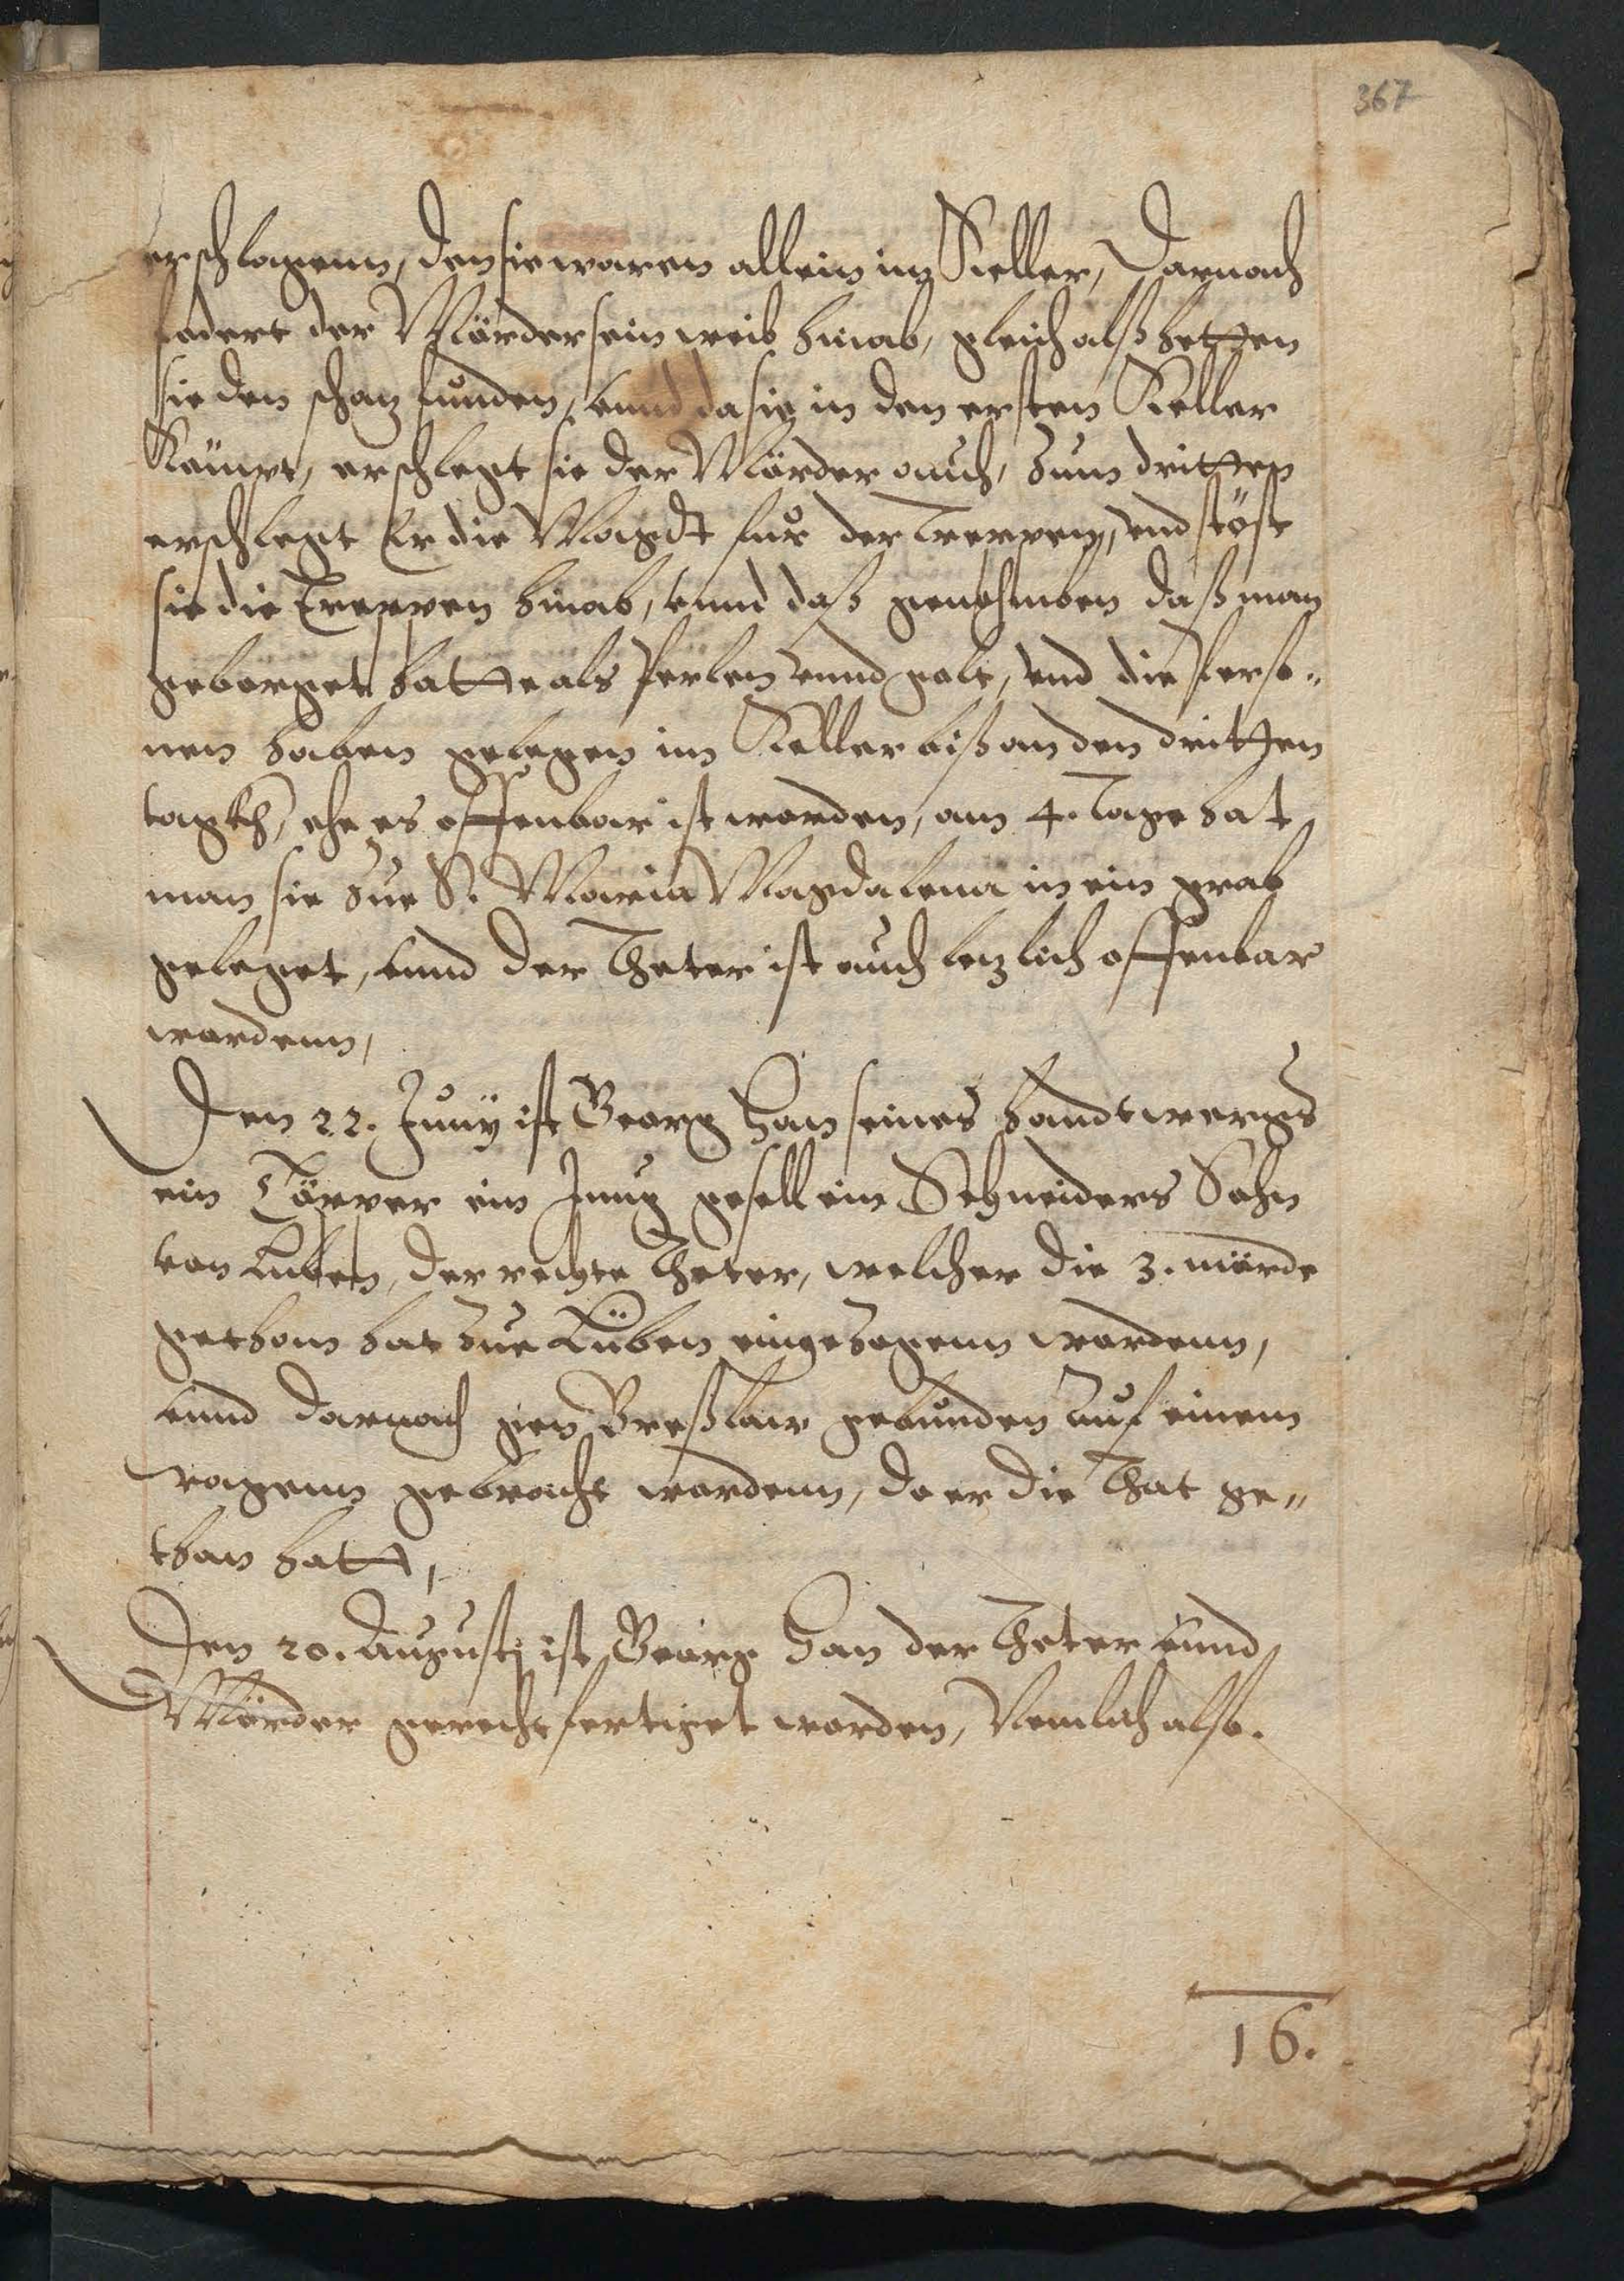 367
erschlagenn, den sie waren allein im Keller, Darnach
fodert der Mörder sein weib hinab, gleich alß hetten
sie den schatz funden, vnnd da sie in den ersten Keller
Kömpt, erschlegt sie der Mörder auch, zum dritten
erschlegt Er die Magdt fur der Treppen, vnd stöst
sie die Treppen hinab, vnnd daß genohmben daß man
geborget hatte als Perlen vnnd golt, vnd die Perso-
nen haben gelegen im Keller biß an den dritten
tagk, ehe es offenbar ist worden, am 4. Tage hat
man sie zue S. Maria Magdalena in ein grab
geleget, vnnd der Theter ist auch letzlich offenbar
wordenn,
Den 22. Junij ist Georg Han seines handtwergs
ein Töpper ein Jung gesell ein Schneiders Sohn
von Luben, der rechte Theter, welcher die 3. mörde
gethon hat zue Lüben eingezogenn wordenn,
vnnd darnach gen Breßlaw gebunden auf einem
wagenn gebracht wordenn, da er die That ge-
than hatt,
Den 20. Augusti ist Georg Han der Theter vnnd
Mörder gerechtfertiget worden, Nemlich also.
16.